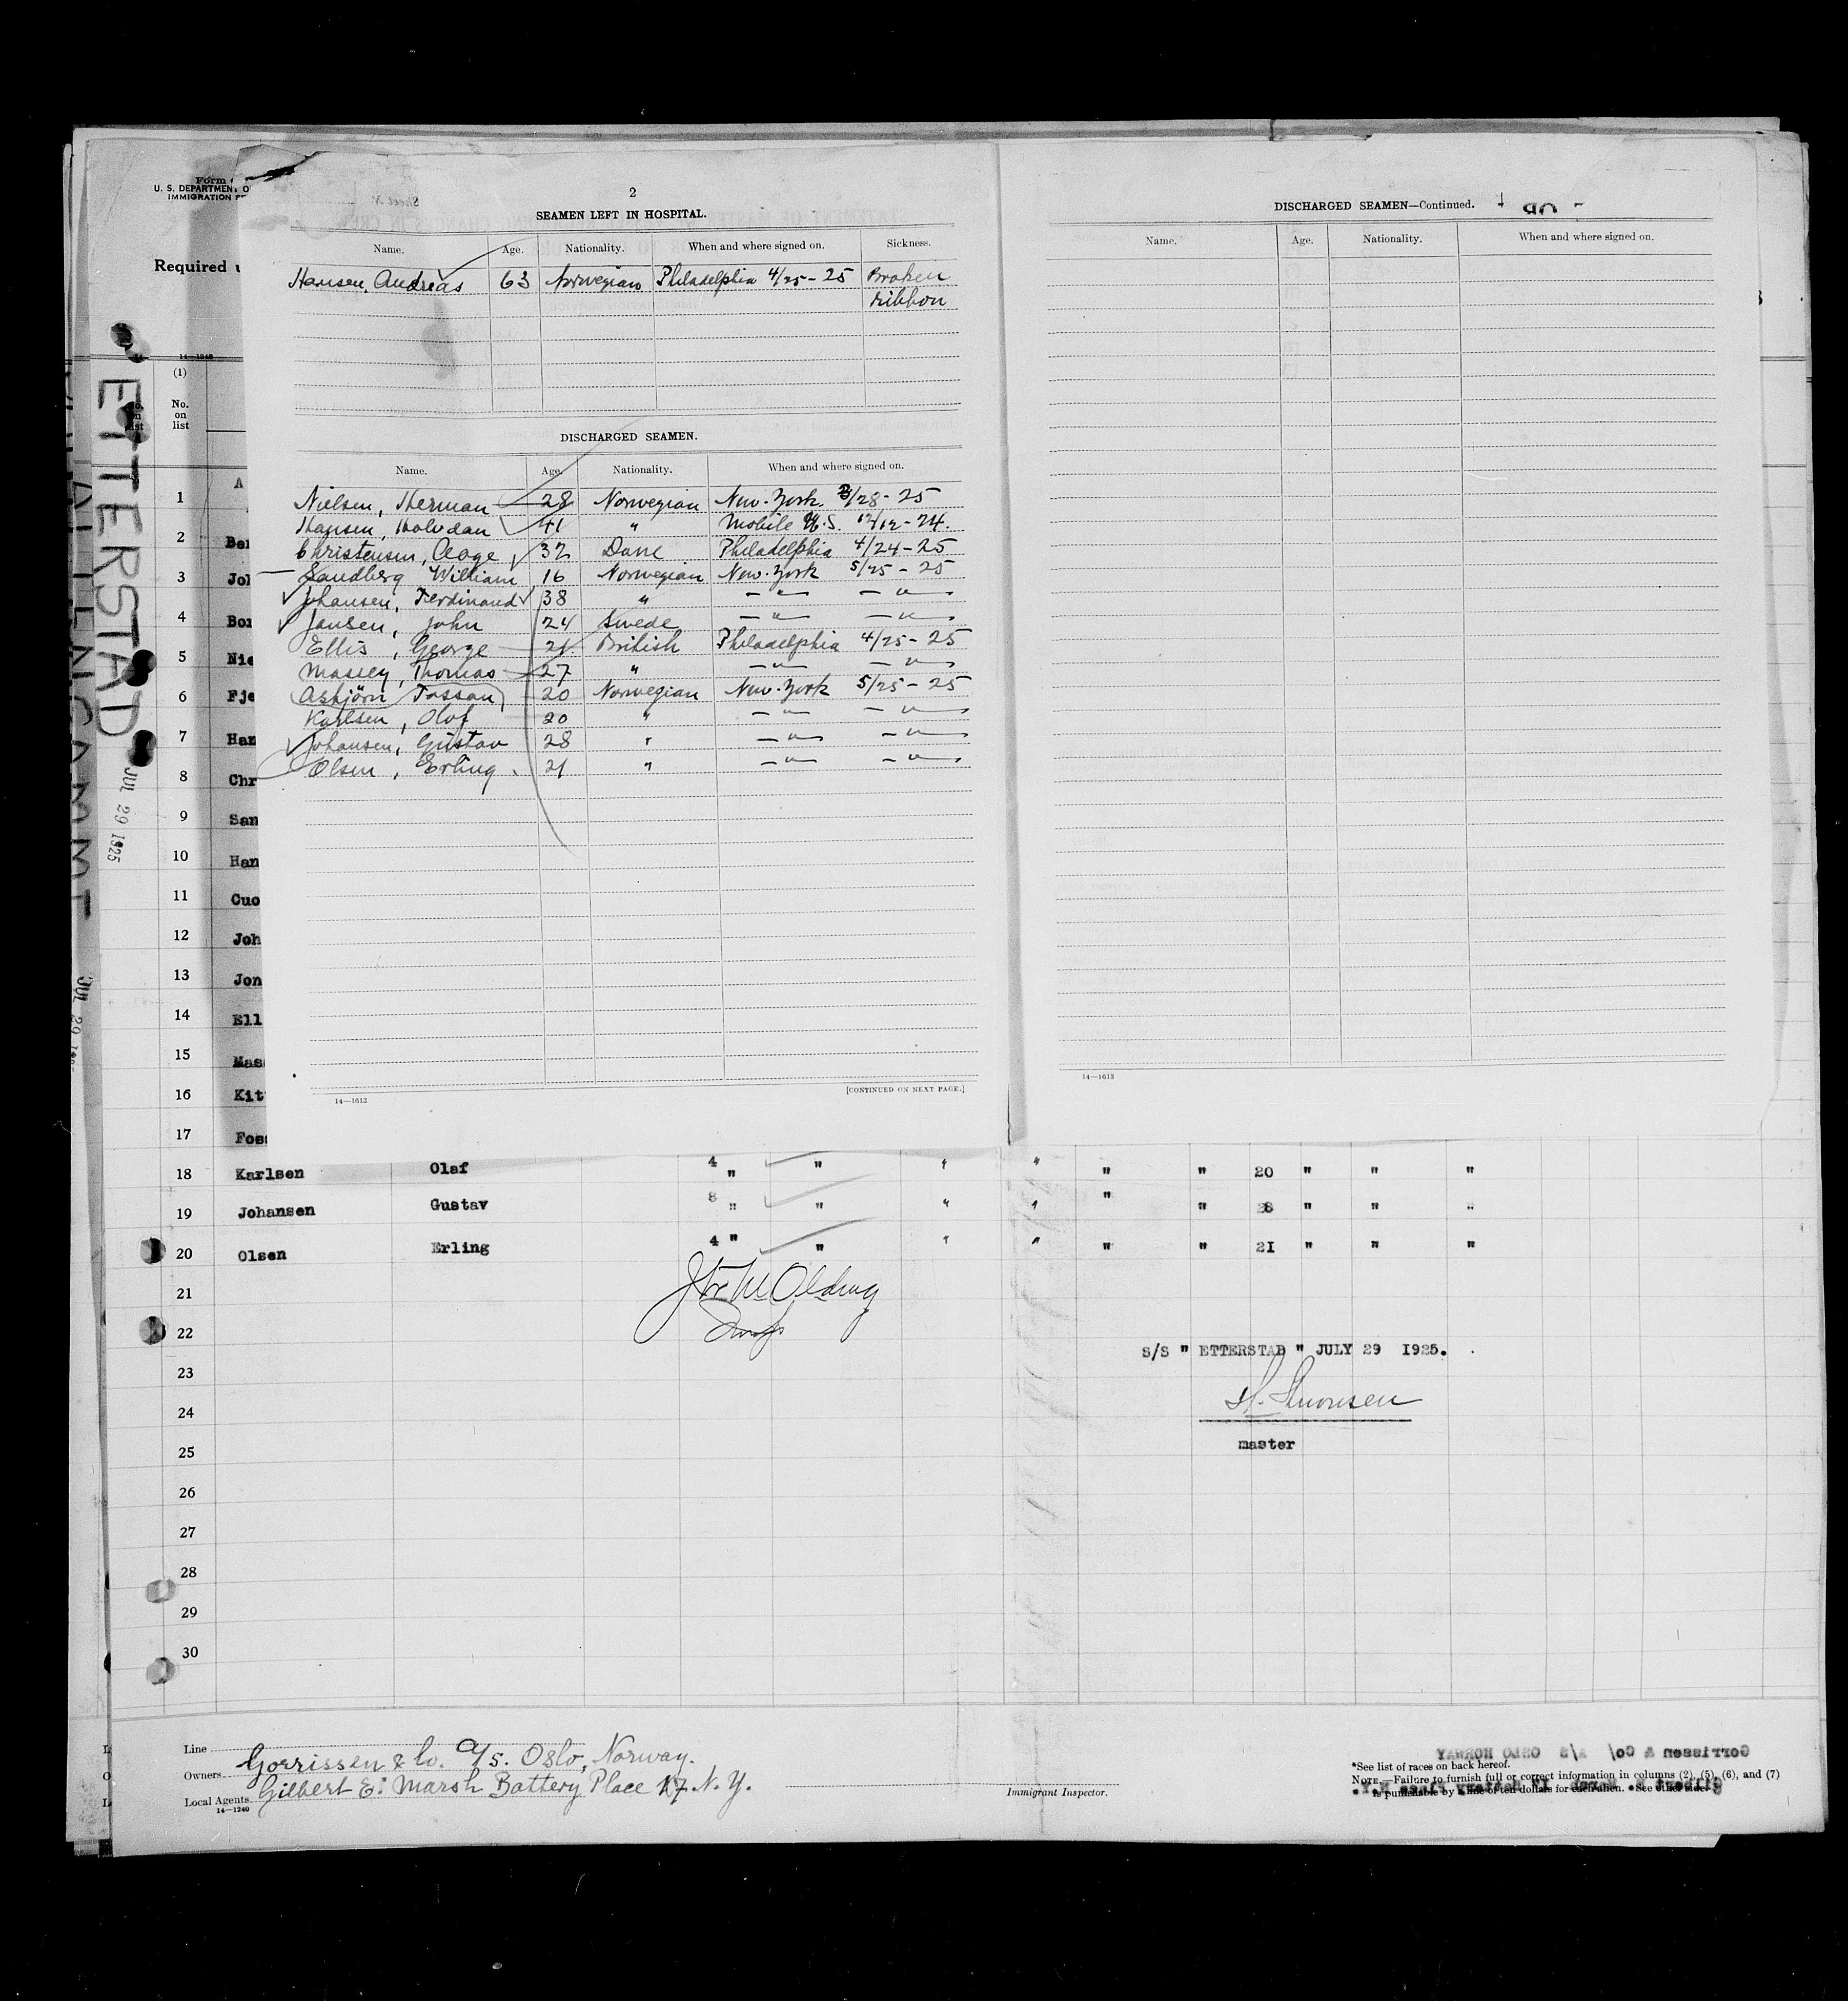 Form
U. S. DEPARTMENT O
IMMIGRATION
Required
14—1240
(1)
No.
on
list
ETTERSTAD
JUL 29 1925
2
SEAMEN LEFT IN HOSPITAL.
Name. Age. Nationality. When and where signed on. Sickness.
Hansen, Andreas 63 Norwegian Philadelphia 4/25-25 Broken
ribbon
DISCHARGED SEAMEN.
Name. Age. Nationality. When and where signed on.
Nielsen, Herman 28 Norwegian New-York 3/28-25
Hansen, Halvdan 41 " Mobile U.S. 12/12-24.
Christensen, Aage 32 Dane Philadelphia 4/24-25
Sandberg William 16 Norwegian New-York 5/25-25
Johansen, Ferdinand 38 " —"— —"—
Jansen, John 24 Swede —"— —"—
Ellis, George 21 British Philadelphia 4/25-25
Massey, Thomas 27 " —"— —"—
Asbjörn Fossan 20 Norwegian New-York 5/25-25
Karlsen, Olaf 20 " —"— —"—
Johansen, Gustav 28 " —"— —"—
Olsen, Erling 21 " —"— —"—
[CONTINUED ON NEXT PAGE.]
14—1613
DISCHARGED SEAMEN—Continued.
Name. Age. Nationality. When and where signed on.
14—1613
1
2 Ber
3 Joh
4 Bor
5 Nie
6 Fje
7 Han
8 Chr
9 San
10 Han
11 Cuo
12 Joh
13 Jon
14 Ell
15 Mas
16 Kit
17 Fos
18 Karlsen Olaf 4 " " " " " " 20 " " "
19 Johansen Gustav 8 " " " " " " 28 " " "
20 Olsen Erling 4 " " " " " " 21 " " "
21
22
23
24
25
26
27
28
29
30
S/S " ETTERSTAD " JULY 29 1925.
master
Line
Owners Gorrissen & Co. A/S. Oslo, Norway.
Local Agents Gilbert E. Marsh Battery Place 17 N.Y.
14—1240
Immigrant Inspector.
*See list of races on back hereof.
NOTE.—Failure to furnish full or correct information in columns (2), (5), (6), and (7)
is punishable by a fine of ten dollars for each alien. See other side.
Gorrissen & Co/ A/S OSLO NORWAY
Gilbert E Marsh 17 Battery Place N.Y.